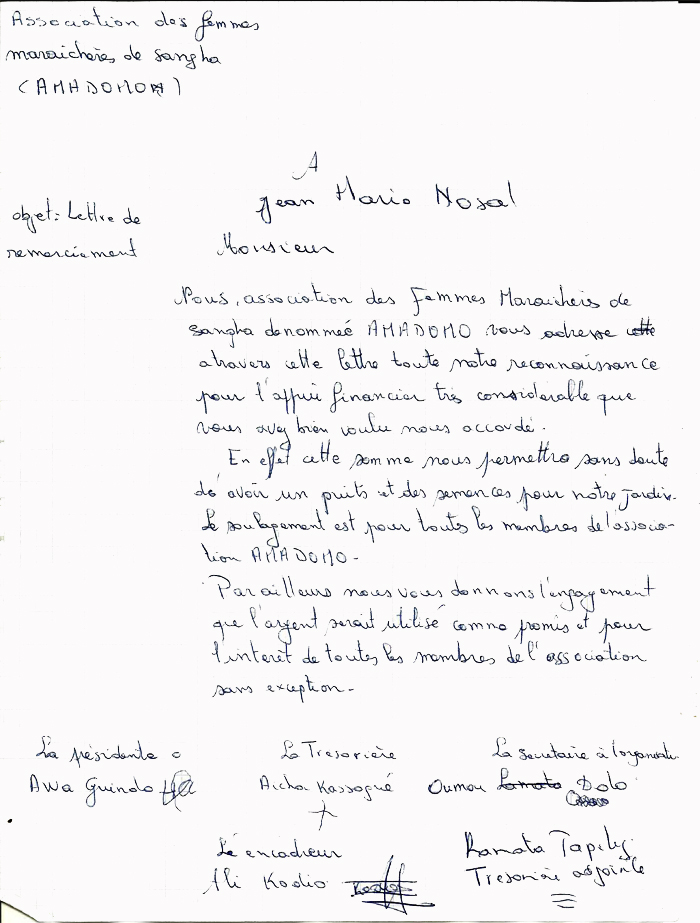 Association des femmes
maraicheres de sangha
(AMADOMO)
A
Jean Mario Nosal
objet: Lettre de
remerciement
Monsieur
Nous, association des Femmes Maraicheis de
sangha denommeé AMADOMO vous adresse cette
atravers cette lettre toute notre reconnaissance
pour l'appui financier très considerable que
vous avez bien voulu nous accordé.
En effet cette somme nous permettra sans doute
de avoir un puits et des semences pour notre jardin.
Le soulagement est pour toutes les membres de l'associa-
tion AMADOMO.
Par ailleurs nous vous donnons l'engagement
que l'argent serait utilisé comme promis et pour
l'interêt de toutes les membres de l'association
sans exception.
La présidente La Tresorière La secretaire à l'organisati.
Awa Guindo Aicha Kassogué Oumou Dolo
Le encadreur Ramata Tapily
Ali Kodio Tresorière adjointe